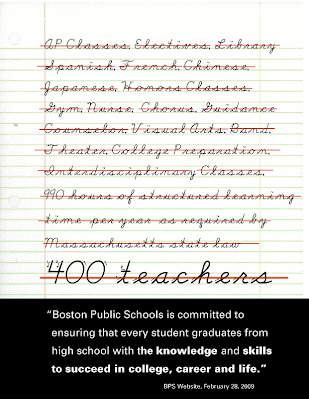 AP Classes, Electives, Library
Spanish, French, Chinese,
Japanese, Honors Classes,
Gym, Nurse, Chorus, Guidance
Counselor, Visual Arts, Band,
Theater, College Preparation,
Interdisciplinary Classes,
990 hours of structured learning
time per year as required by
Massachusetts state law
400 teachers
“Boston Public Schools is committed to
ensuring that every student graduates from
high school with the knowledge and skills
to succeed in college, career and life.”
BPS Website, February 28, 2009